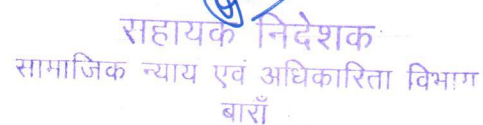 सहायक निदेशक
सामाजिक न्याय एवं अधिकारिता विभाग
बाराँ